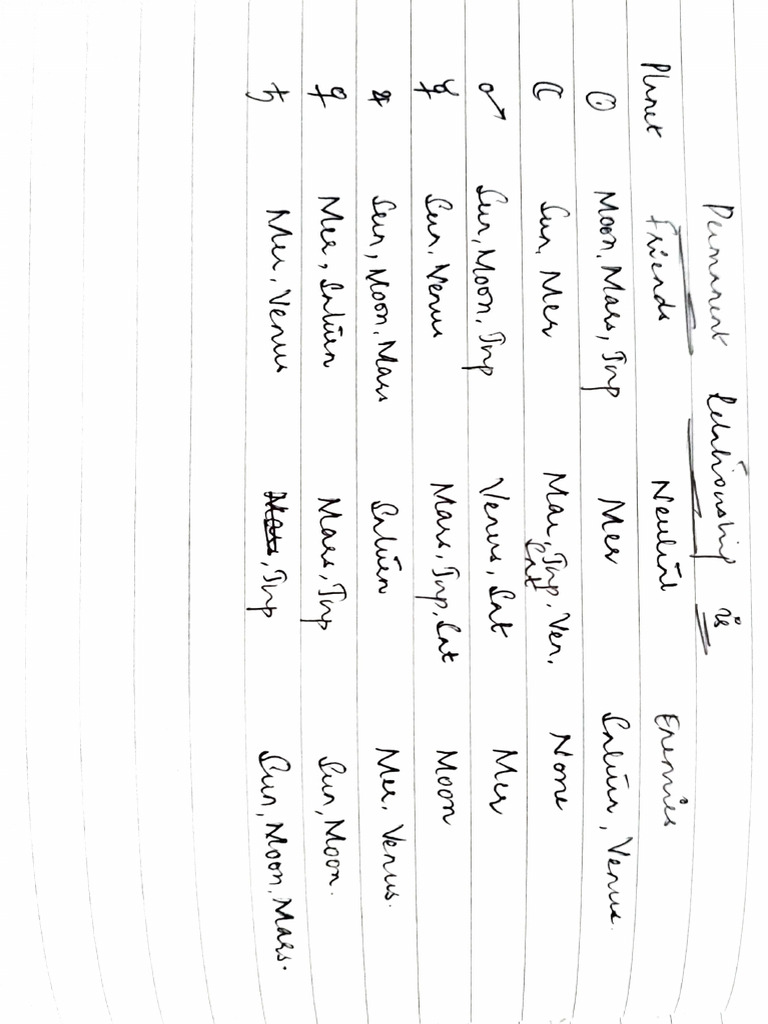 Permanent Relationship is
Planet Friends Neutral Enemies
☉ Moon, Mars, Jup Mer Saturn, Venus.
☾ Sun, Mer Mar, Jup, Ven, Sat None
♂ Sun, Moon, Jup Venus, Sat Mer
☿ Sun, Venus Mars, Jup, Sat Moon
♃ Sun, Moon, Mars Saturn Mer, Venus.
♀ Mer, Saturn Mars, Jup Sun, Moon.
♄ Mer, Venus Mars, Jup Sun, Moon, Mars.